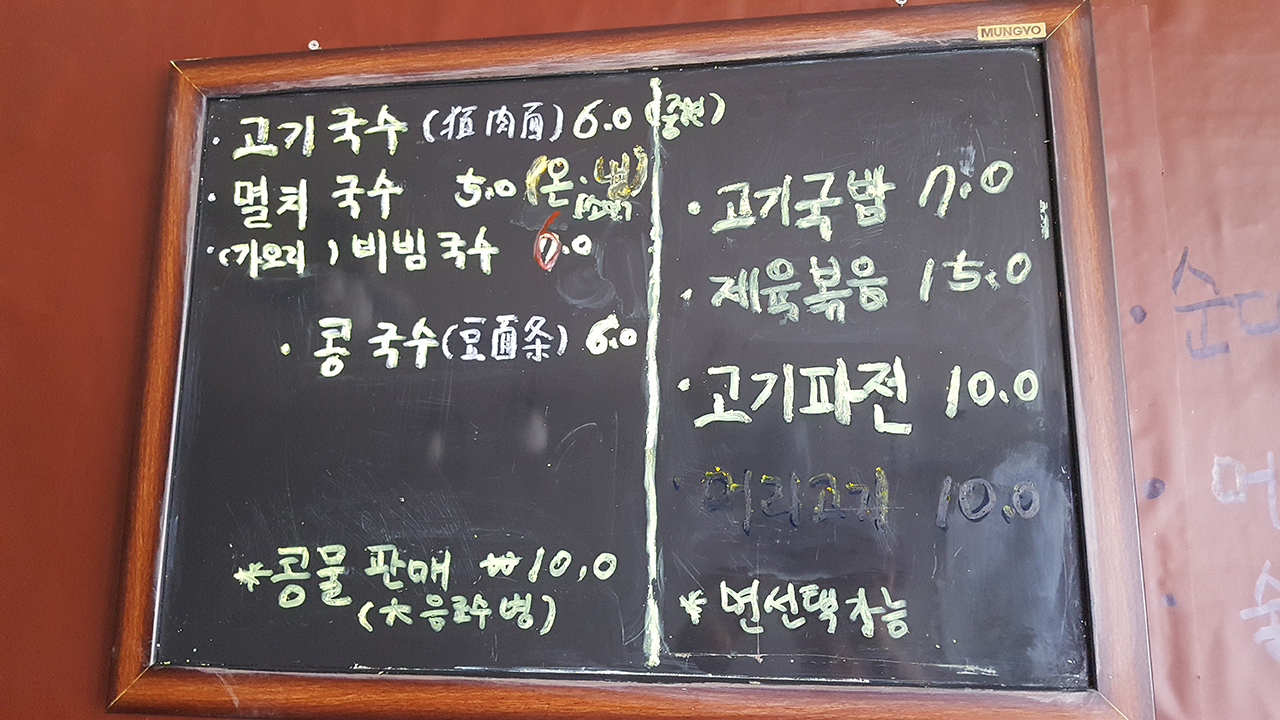 MUNGYO
· 고기국수 (猪肉面) 6.0
· 멸치 국수 5.0 (온·
· (가오리) 비빔국수 .0
· 콩국수 (豆面条) 6.0
* 콩물 판매 ₩10,0
(大 음료수병)
· 고기국밥 7.0
· 제육볶음 15.0
· 고기파전 10.0
· 머리고기 10.0
* 면선택가능
· 순대
· 머